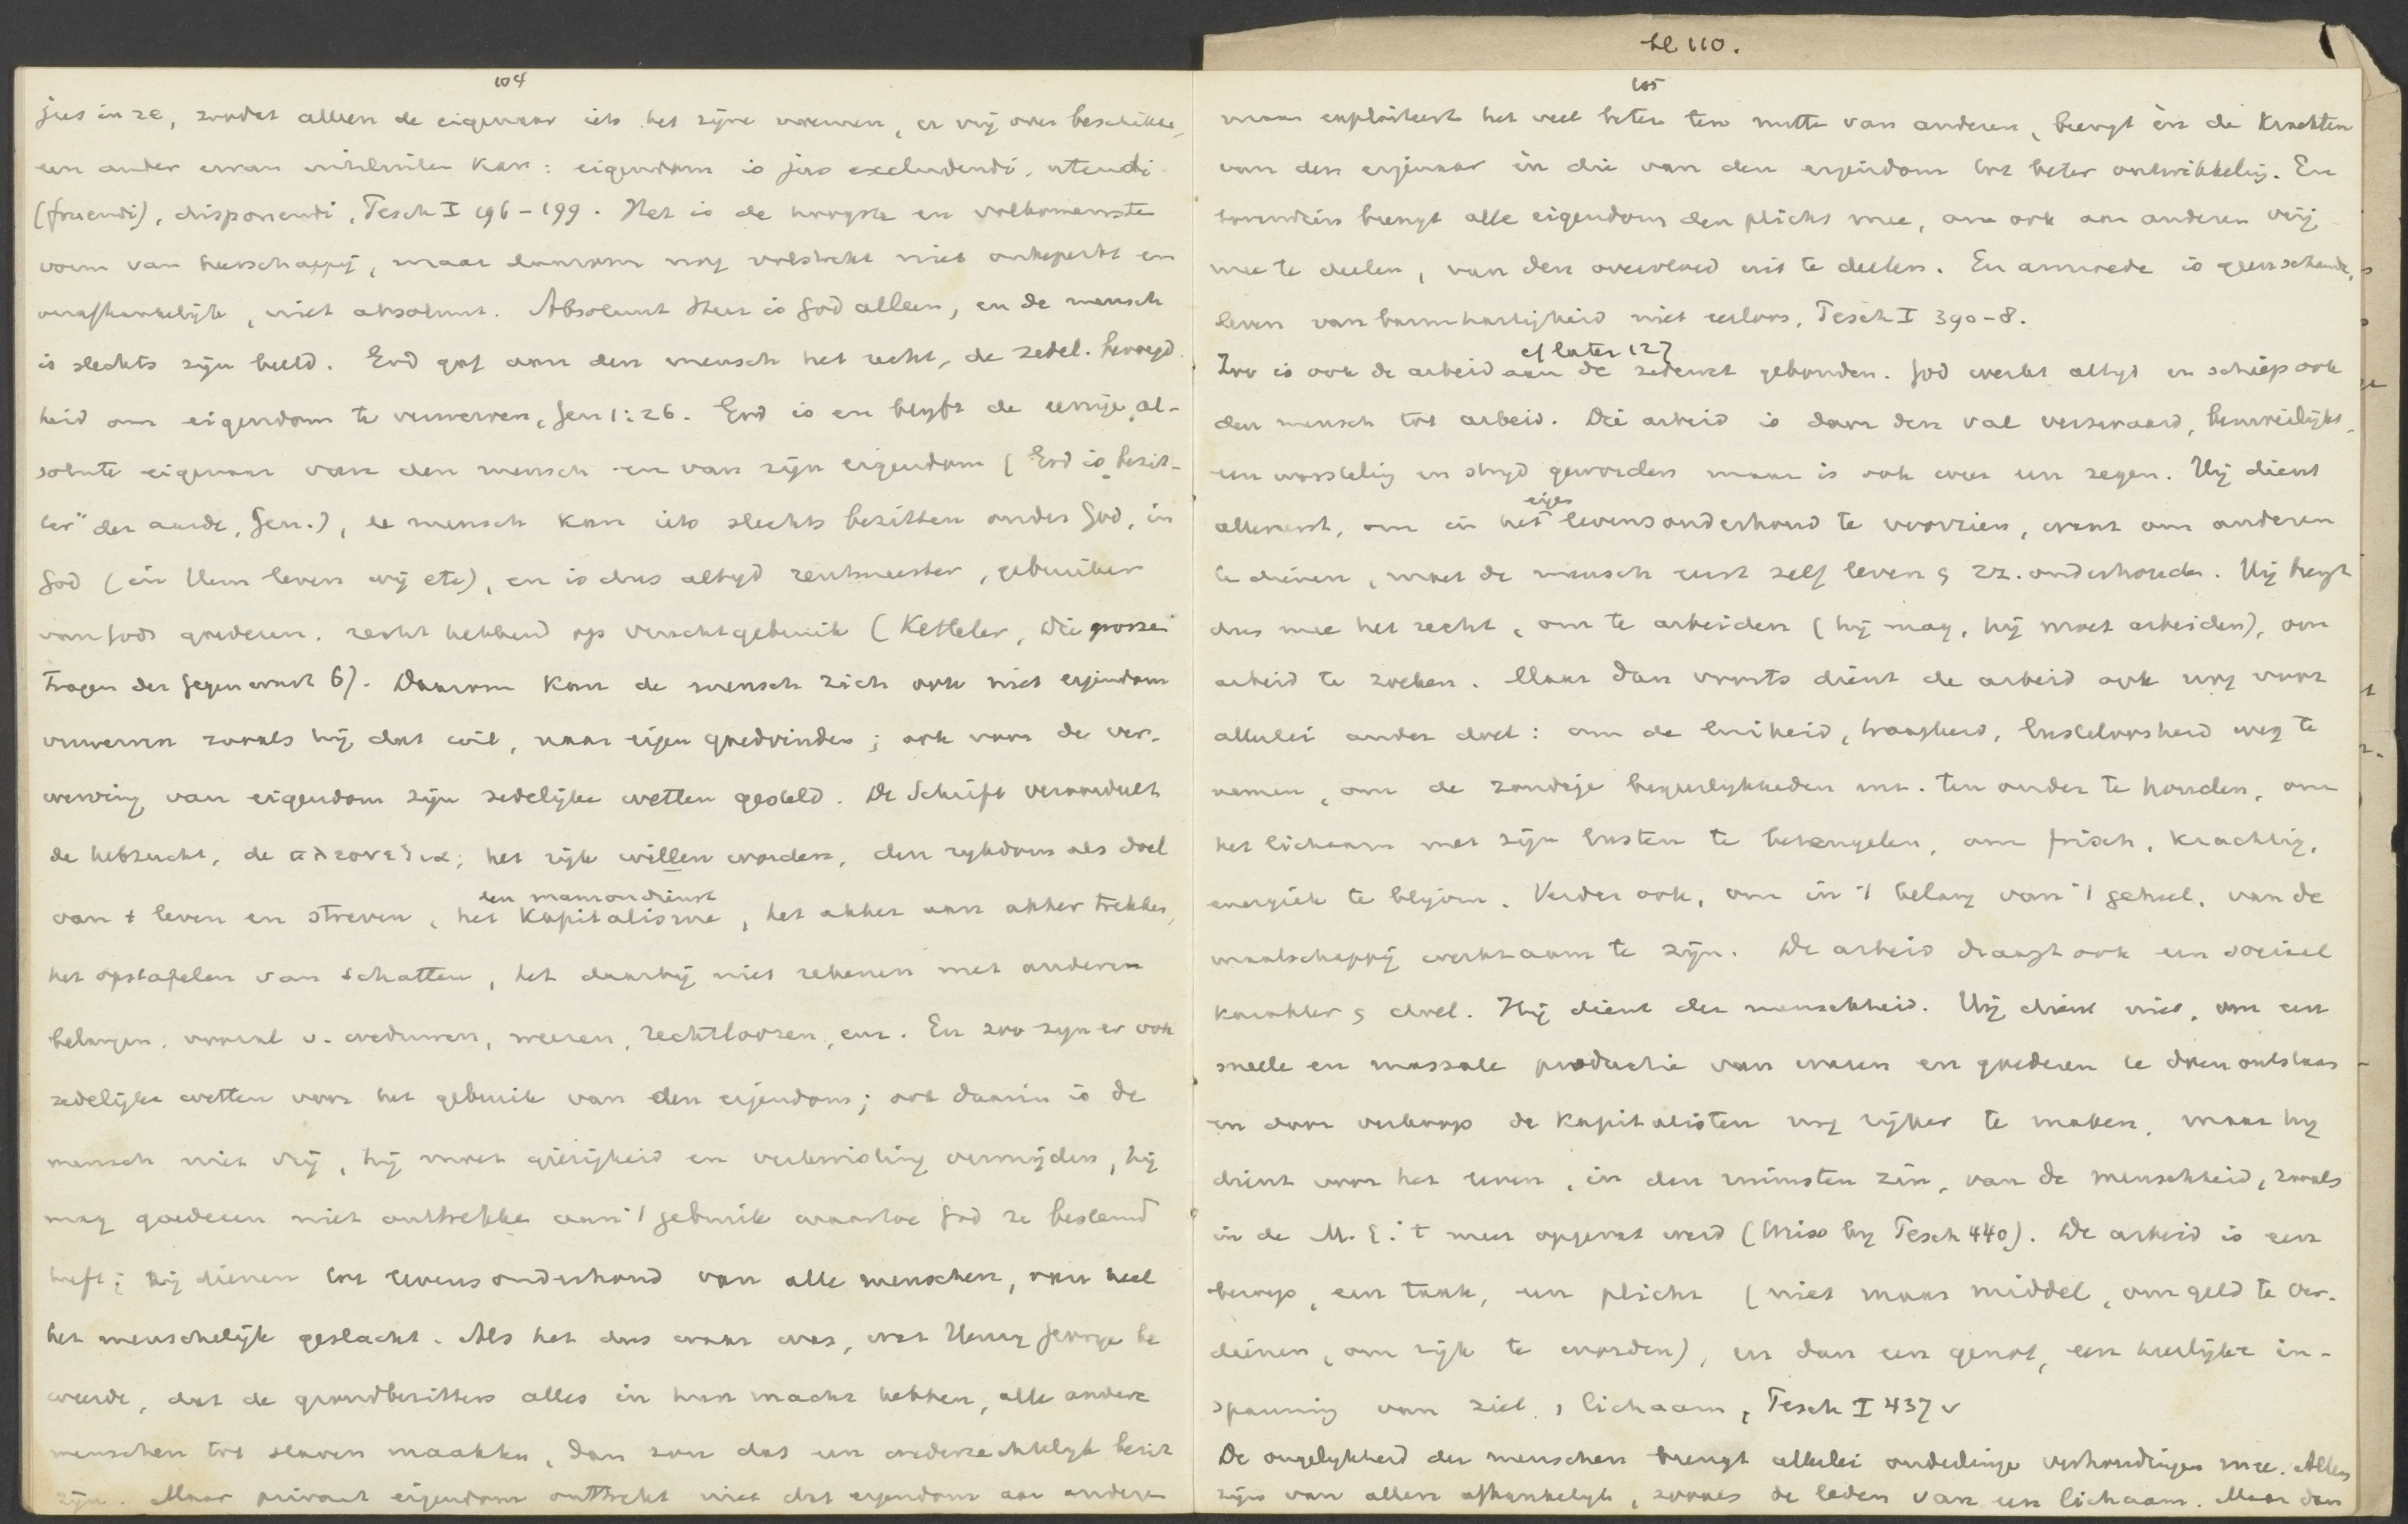 104
jus in re, zoodat alleen de eigenaar iets het zijne noemen, er vrij over beschikken,
een ander ervan uitsluiten kan: eigendom is jus excludendi, utendi
(fruendi), disponendi, Tesch I 196-199. Het is de hoogste en volkomenste
vorm van heerschappij, maar daarom nog volstrekt niet onbeperkt en
onafhankelijk, niet absoluut. Absoluut Heer is God alleen, en de mensch
is slechts zijn beeld. God gaf aan den mensch het recht, de zedel. bevoegd-
heid om eigendom te verwerven, Gen 1:26. God is en blijft de eenige, ab-
solute eigenaar van den mensch en van zijn eigendom (God is "bezit-
ter" der aarde, Gen.), de mensch kan iets slechts bezitten onder God, in
God (in Hem leven wij etc), en is dus altijd rentmeester, gebruiker
van Gods goederen. recht hebbend op vruchtgebruik (Ketteler, Die grossen
Fragen der Gegenwart 6). Daarom kan de mensch zich ook niet eigendom
verwerven zooals hij dat wil, naar eigen goedvinden; ook voor de ver-
werving van eigendom zijn zedelijke wetten gesteld. De Schrift veroordeelt
de hebzucht, de πλεονεξια; het rijk willen worden, den rijkdom als doel
den mamondienst
van 't leven en streven, het Kapitalisme, het akker aan akker trekken,
het opstapelen van schatten, het daarbij niet rekenen met anderer
belangen, vooral v. weduwen, weezen, rechtloozen, enz. En zoo zijn er ook
zedelijke wetten voor het gebruik van den eigendom; ook daarin is de
mensch niet vrij, hij moet gierigheid en verkwisting vermijden, hij
mag goederen niet onttrekken aan 't gebruik waartoe God ze bestemd
heeft; zij dienen tot levensonderhoud van alle menschen, van heel
het menschelijk geslacht. Als het dus waar was, wat Henry George be
weerde, dat de grondbezitters alles in hun macht hebben, alle andere
menschen tot slaven maakten, dan zou dat een wederrechtelijk bezit
zijn. Maar privaat eigendom onttrekt niet dat eigendom aan anderen
bl 110.
105
maar exploiteert het veel beter ten nutte van anderen, brengt èn de Krachten
van den eigenaar èn die van den eigendom tot beter ontwikkeling. En
bovendien brengt alle eigendom den plicht mee, om ook aan anderen vrij
mee te deelen, van den overvloed uit te deelen. En armoede is geen schande,
leven van barmhartigheid niet eerloos, Tesch I 390-8.
cf later 127
Zoo is ook de arbeid aan de zedewet gebonden. God werkt altijd en schiep ook
den mensch tot arbeid. Die arbeid is door den val verzwaard, bemoeilijkt,
een worsteling en strijd geworden maar is ook weer een zegen. Hij dient
eigen
allereerst, om in het levensonderhoud te voorzien, want om anderen
te dienen, moet de mensch eerst zelf leven & zz. onderhouden. Hij brengt
dus mee het recht, om te arbeiden (hij mag, hij moet arbeiden), om
arbeid te zoeken. Maar dan voorts dient de arbeid ook nog voor
allerlei ander doel: om de luiheid, traagheid, lusteloosheid weg te
nemen, om de zondige begeerlijkheden ten onder te houden, om
het lichaam met zijn lusten te beteugelen, om frisch, krachtig,
energiek te blijven. Verder ook, om in 't belang van 't geheel, van de
maatschappij werkzaam te zijn. De arbeid draagt ook een sociaal
karakter & doel. Hij dient der menschheid. Hij dient niet, om een
snelle en massale productie van waren en goederen te doen ontstaan
en door verkoop de Kapitalisten nog rijker te maken, maar hij
dient voor het leven, in den ruimsten zin, van de menschheid, zooals
in de M. E. 't meer opgevat werd (Weiss bij Tesch 440). De arbeid is een
beroep, een taak, een plicht (niet maar middel, om geld te ver-
dienen, om rijk te worden), en dan een genot, een heerlijke in-
spanning van ziel & lichaam, Tesch I 437 v
De ongelijkheid der menschen brengt allerlei onderlinge verhoudingen mee. Allen
zijn van allen afhankelijk, zooals de leden van een lichaam. Maar dan